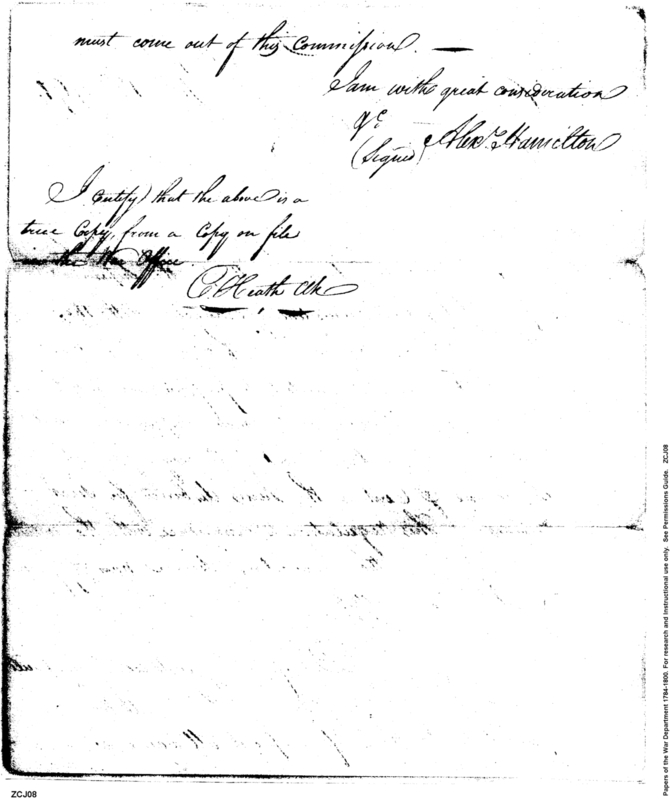 must come out of this Commission. —
I am with great consideration
&c
(Signed) Alexr Hamilton
I Certify that the above is a
true Copy, from a Copy on file
in the War Office
C Heath Clk
ZCJ08
Papers of the War Department 1784-1800. For research and instructional use only. See Permissions Guide. ZCJ08